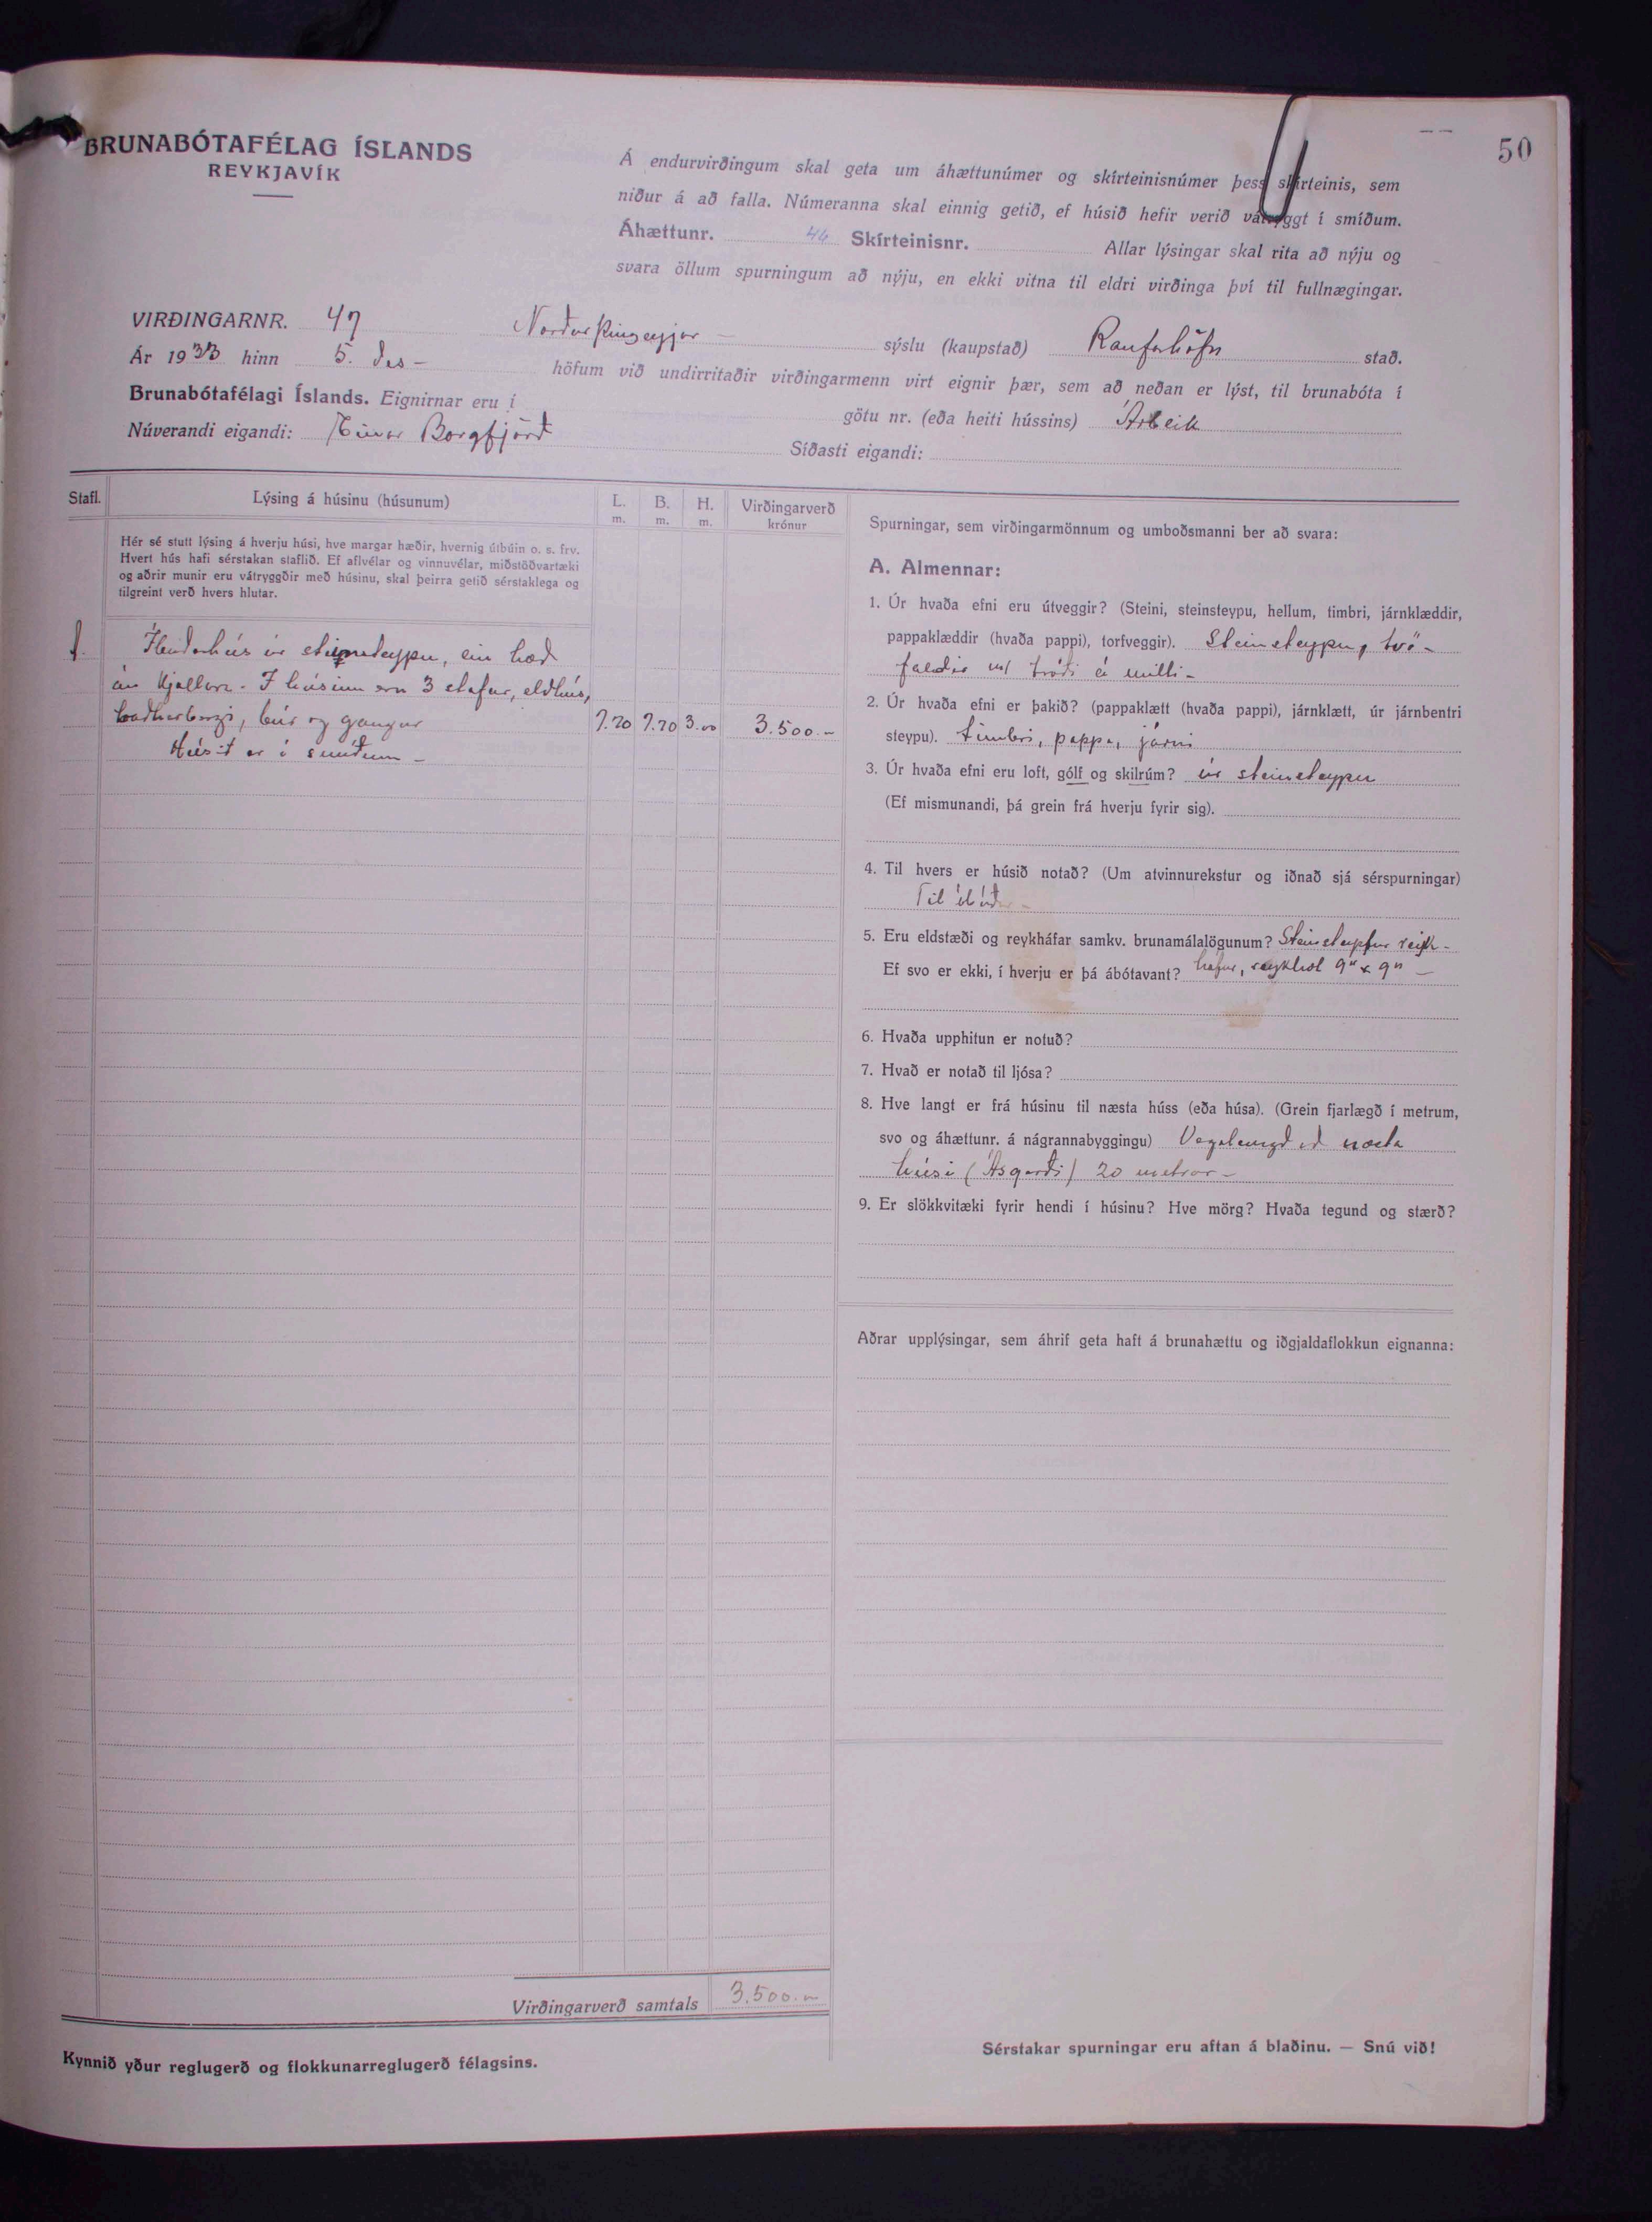 50
BRUNABÓTAFÉLAG ÍSLANDS
REYKJAVÍK
Á endurvirðingum skal geta um áhættunúmer og skírteinisnúmer þess skírteinis, sem
niður á að falla. Númeranna skal einnig getið, ef húsið hefir verið vátryggt í smíðum.
Áhættunr. 46 Skírteinisnr. Allar lýsingar skal rita að nýju og
svara öllum spurningum að nýju, en ekki vitna til eldri virðinga því til fullnægingar.
VIRÐINGARNR. 47 Norður Þingeyjar - sýslu (kaupstað) Raufarhöfn stað.
Ár 1933 hinn 5. des - höfum við undirritaðir virðingarmenn virt eignir þær, sem að neðan er lýst, til brunabóta í
Brunabótafélagi Íslands. Eignirnar eru í götu nr. (eða heiti hússins)
Núverandi eigandi: Einar Borgfjörð Síðasti eigandi:
Stafl. Lýsing á húsinu (húsunum) L. m. B. m. H. m. Virðingarverð krónur
Hér sé stutt lýsing á hverju húsi, hve margar hæðir, hvernig útbúin o. s. frv.
Hvert hús hafi sérstakan staflið. Ef aflvélar og vinnuvélar, miðstöðvartæki
og aðrir munir eru vátryggðir með húsinu, skal þeirra getið sérstaklega og
tilgreint verð hvers hlutar.
Íbúðarhús úr steinsteypu, ein hæð
án kjallara. Í húsinu eru 3 stofur, eldhús,
baðherbergi, búr og gangur 7.70 7.70 3.00 3.500.-
Húsið er í smíðum -
Virðingarverð samtals 3.500.-
Kynnið yður reglugerð og flokkunarreglugerð félagsins.
Spurningar, sem virðingarmönnum og umboðsmanni ber að svara:
A. Almennar:
1. Úr hvaða efni eru útveggir? (Steini, steinsteypu, hellum, timbri, járnklæddir,
pappaklæddir (hvaða pappi), torfveggir). Steinsteypu, tvö-
faldir m/ tróði á milli -
2. Úr hvaða efni er þakið? (pappaklætt (hvaða pappi), járnklætt, úr járnbentri
steypu). timbri, pappa, járni
3. Úr hvaða efni eru loft, gólf og skilrúm? úr steinsteypu
(Ef mismunandi, þá grein frá hverju fyrir sig).
4. Til hvers er húsið notað? (Um atvinnurekstur og iðnað sjá sérspurningar)
Til íbúðar -
5. Eru eldstæði og reykháfar samkv. brunamálalögunum? Steinsteyptur reyk-
Ef svo er ekki, í hverju er þá ábótavant? háfur, reykhol 9" x 9" -
6. Hvaða upphitun er notuð?
7. Hvað er notað til ljósa?
8. Hve langt er frá húsinu til næsta húss (eða húsa). (Grein fjarlægð í metrum,
svo og áhættunr. á nágrannabyggingu) Vegalengd að næsta
húsi (Ásgarði) 20 metrar -
9. Er slökkvitæki fyrir hendi í húsinu? Hve mörg? Hvaða tegund og stærð?
Aðrar upplýsingar, sem áhrif geta haft á brunahættu og iðgjaldaflokkun eignanna:
Sérstakar spurningar eru aftan á blaðinu. — Snú við!